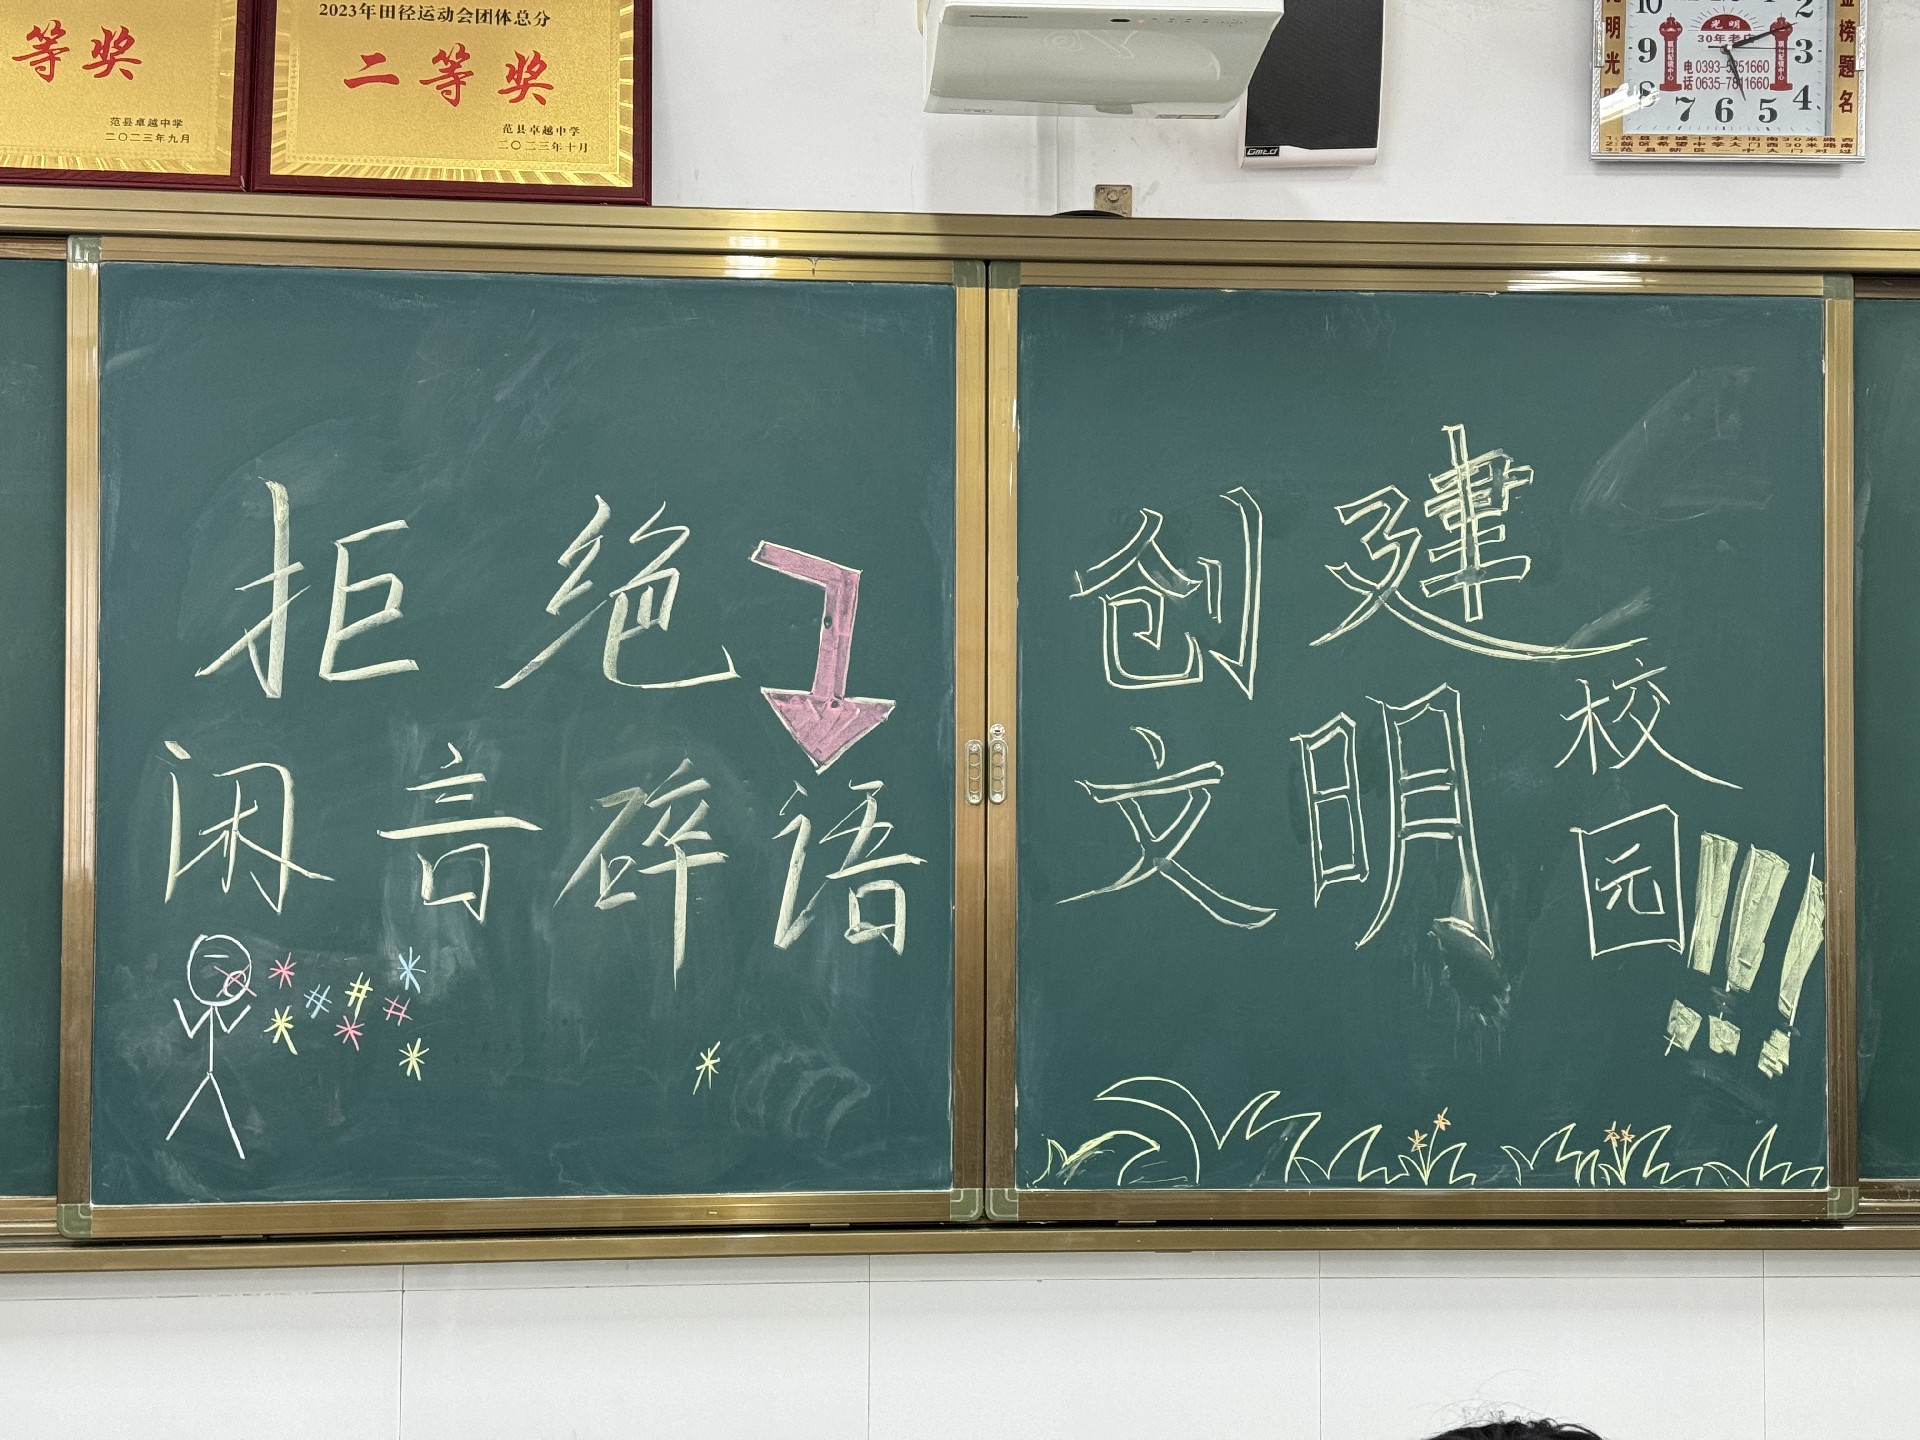 等奖
范县卓越中学
二〇二三年九月
2023年田径运动会团体总分
二等奖
范县卓越中学
二〇二三年十月
Gmtd
明光明
光明
30年老店
电话
0393-5251660
0635-7811660
金榜题名
10 2 9 3 8 4 7 6 5
拒绝
闲言碎语
创建
文明
校园!!!